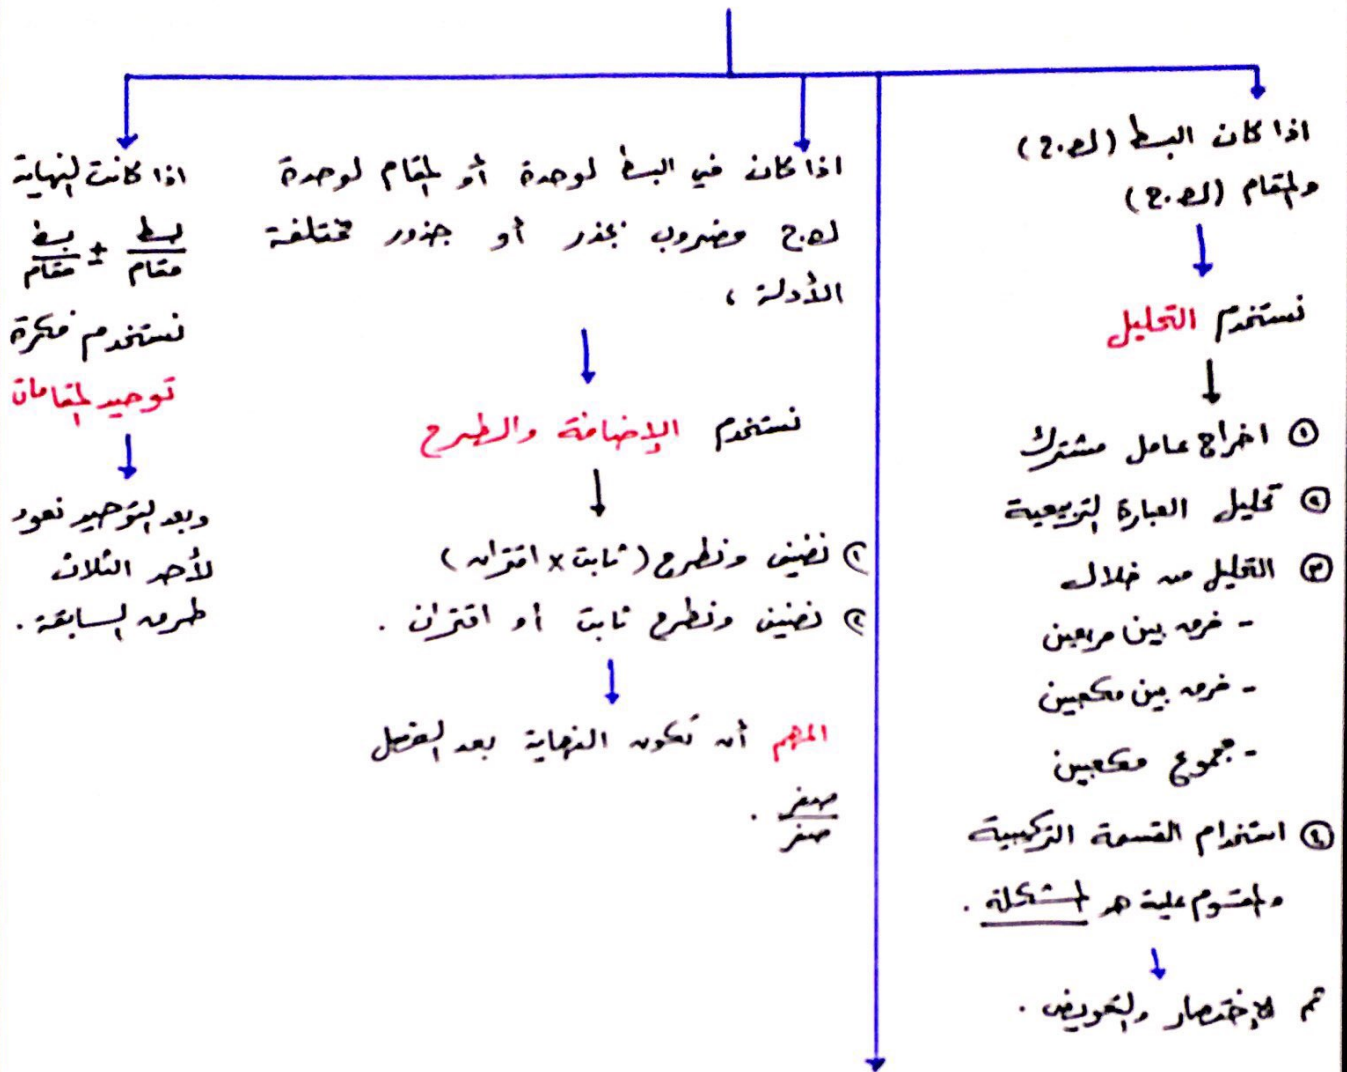 اذا كان البسط (ك.ح)
والمقام (ك.ح)
نستخدم التحليل
① اخراج عامل مشترك
② تحليل العبارة التربيعية
③ التحليل من خلال
- فرق بين مربعين
- فرق بين مكعبين
- مجموع مكعبين
④ استخدام القسمة التركيبية
والمقسوم علية هو المشكلة .
ثم الإختصار والتعويض .
اذا كان في البسط لوحدة أو المقام لوحدة
ك.ح مضروب بجذر أو جذور مختلفة
الأدلة ،
نستخدم الإضافة والطرح
١) نضيف ونطرح (ثابت × اقتران)
٢) نضيف ونطرح ثابت أو اقتران .
المهم أن تكون النهاية بعد الفصل
صفر
صفر .
اذا كانت النهاية
بسط ± بسط
مقام مقام
نستخدم فكرة
توحيد المقامات
وبعد التوحيد نعود
لأحد الثلاث
طرق السابقة .